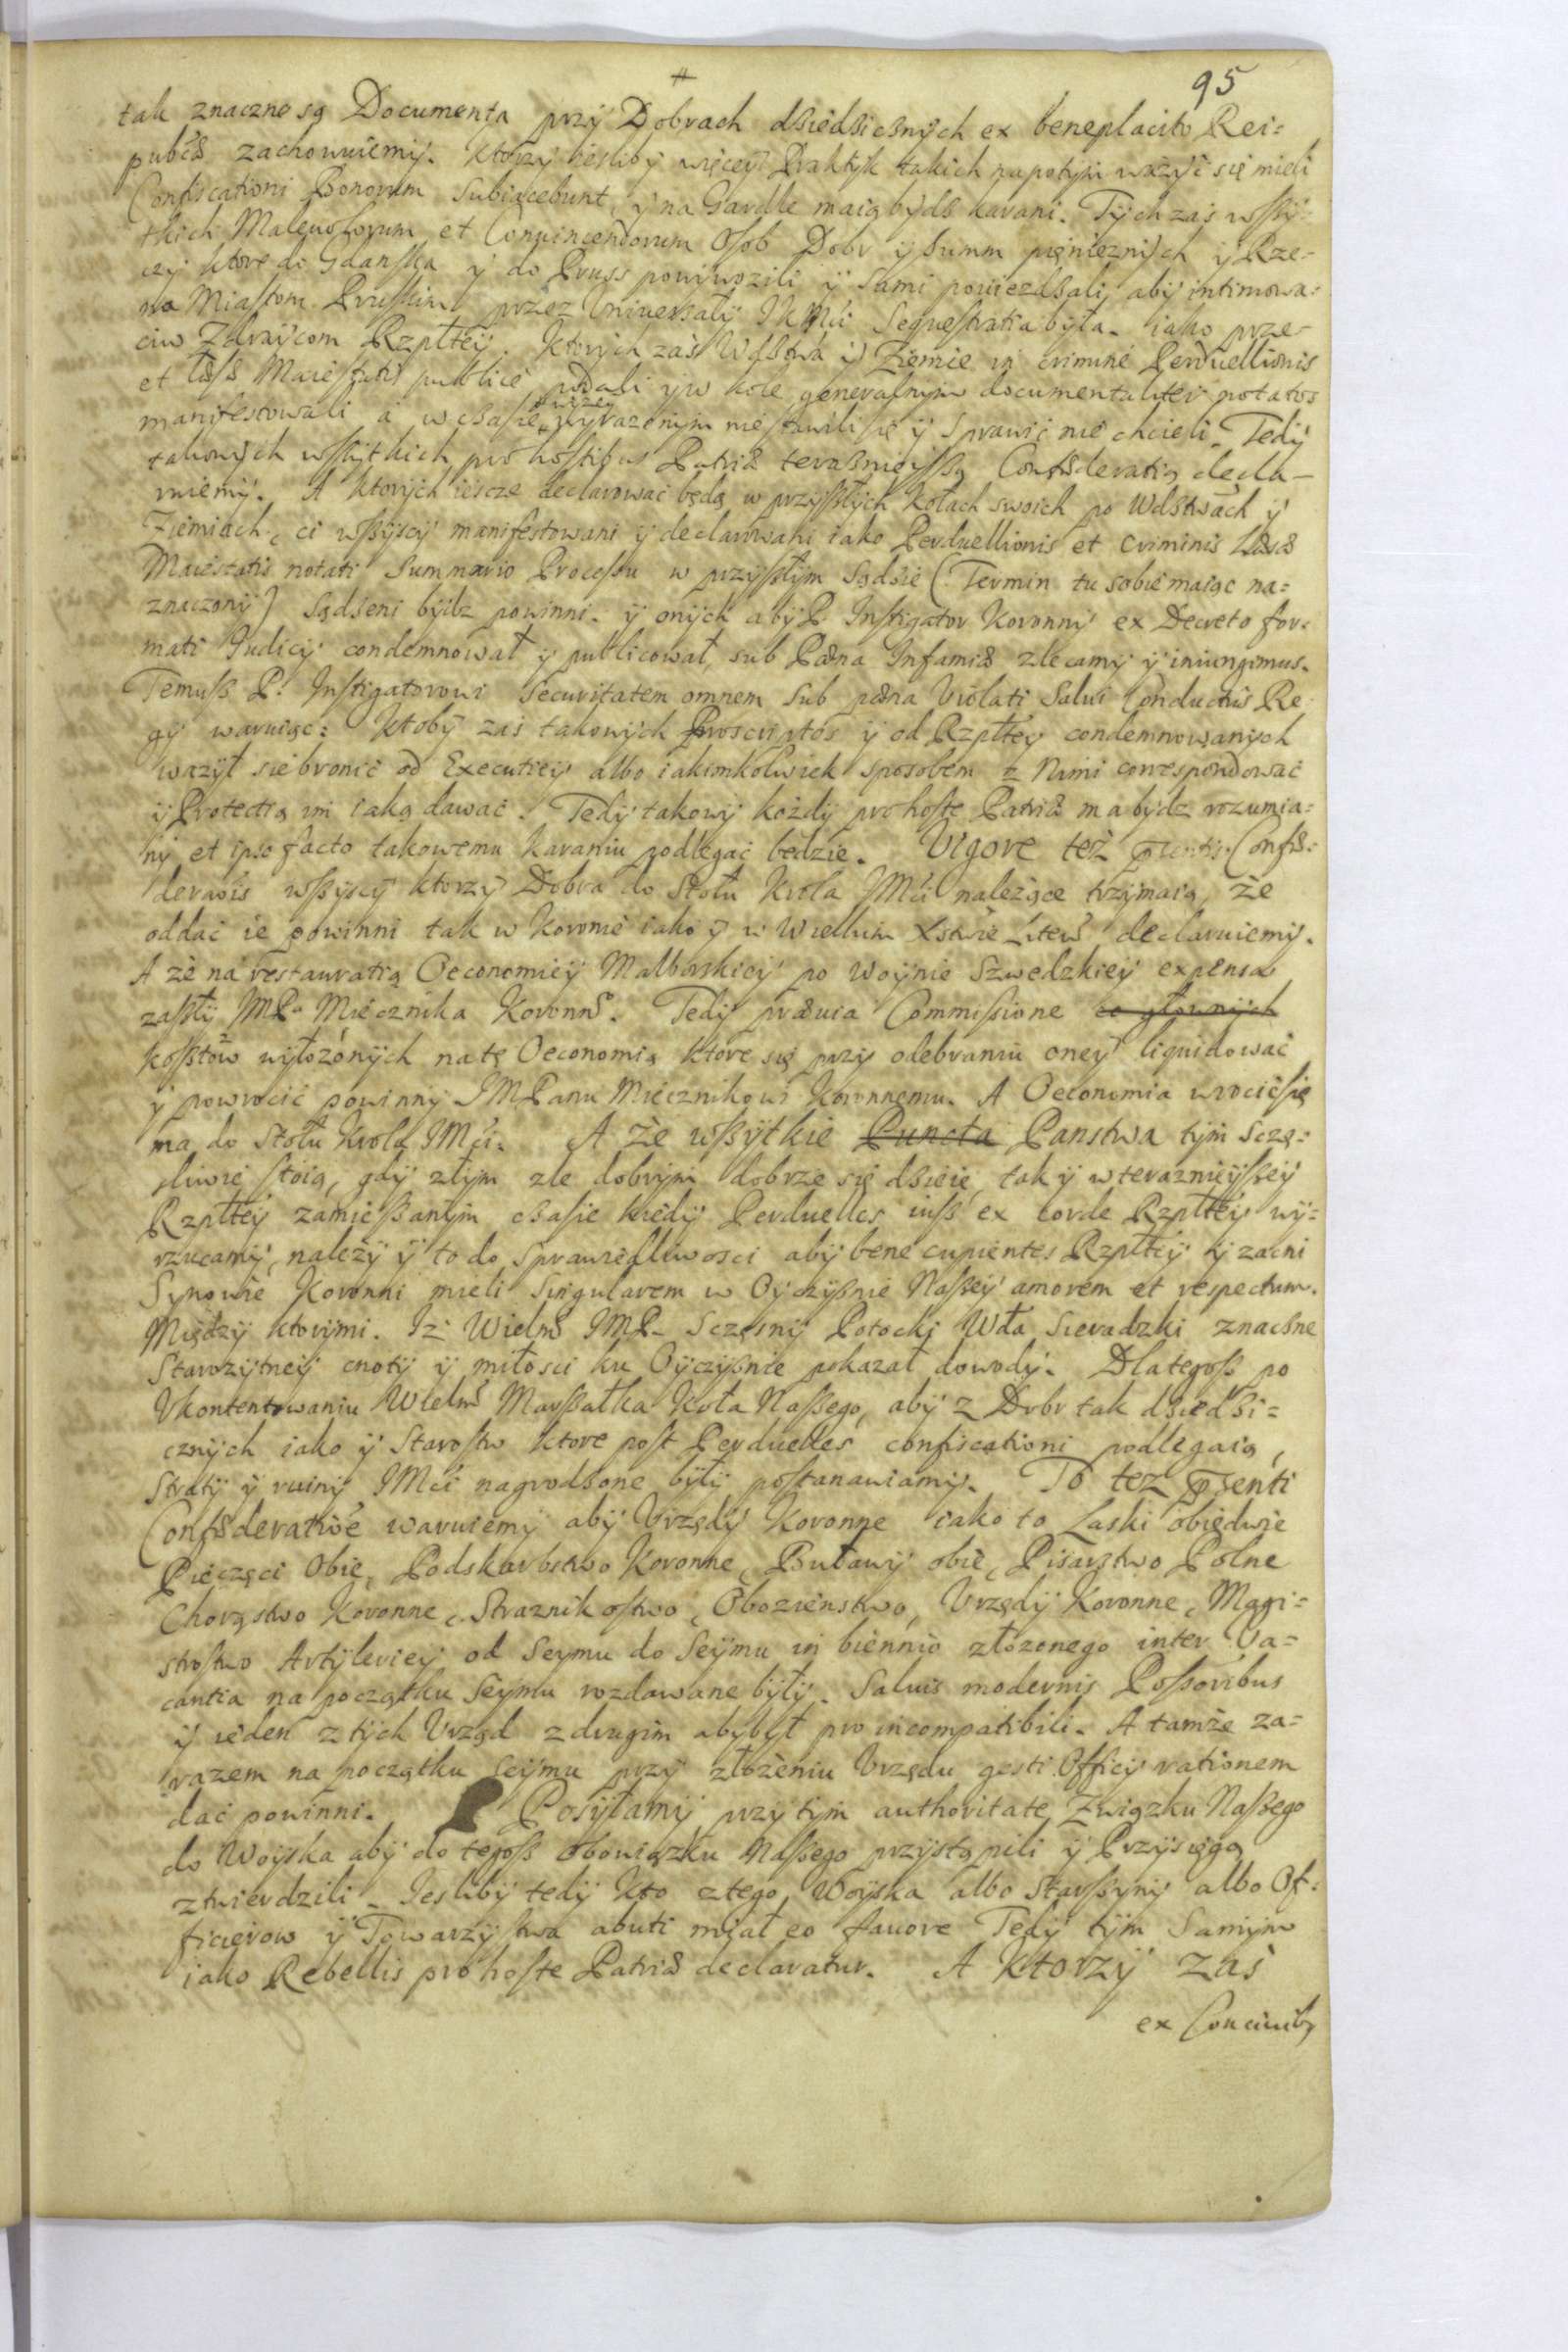 95
tak znaczne są Documenta przÿ Dobrach dßiedßicßnÿch ex beneplacito Rei=
publæ zachowuiemÿ. Ktorzÿ iesliby więceÿ Praktyk takich napotÿm ważÿć się mieli
Confiscationi Bonorum Subiacebunt, ÿ na Gardle maią bÿdź karani. Tÿch zas wßÿ=
tkich Malevolorum et Convincendorum Osob Dobr ÿ Summ pięnieznÿch ÿ Rze=
czÿ ktore do Gdanska ÿ do Pruss powÿwozili ÿ sami powiezdßali, abÿ intimowa=
na Miastom Pruskim przez Uniwersałÿ JKMći Sequestratia bÿła. iako prze=
ciw Zdraÿcom Rzplteÿ. Ktorÿch zaś Wdstwa ÿ Ziemie in crimine Perduellionis
et læsæ Maiestatis publicè podali ÿ w kole generalnÿm documentaliter notatos
manifestowali a w cßasie wÿzeÿ wÿrazonÿm nie stawili się ÿ Sprawić nie chcieli. Tedÿ
takowÿch wßÿtkich pro hostibus Patriæ teraßnieÿßą Confæderatią decla=
ruiemÿ. A ktorÿch iescze declarować będą w przÿßłÿch Kołach swoich po Wdstwach ÿ
Ziemiach, ci wßÿscÿ manifestowani ÿ declarowani iako Perduellionis et Criminis Læsæ
Maiestatis notati Summario Processu w przÿßłÿm Sądßie (Termin tu sobie maiąc na=
znaczonÿ) Sądßeni bÿdz powinni. ÿ onÿch abÿ P. Instigator Koronnÿ ex Decreto for=
mati Iudicÿ condemnował ÿ publicował, sub Pæna Infamiæ zlecamÿ ÿ iniungimus.
Temuß P. Instigatorowi Securitatem omnem Sub pæna Violati Salvi Conductus Re=
gÿ waruiąc: Ktobÿ zas takowÿch Proscriptos ÿ od Rzpłteÿ condemnowanÿch
ważÿł się bronić od Executieÿ albo iakimkolwiek sposobem z Nimi correspondować
ÿ Protectią im iaką dawać. Tedÿ takowÿ każdÿ pro hoste Patriæ ma bÿdz rozumia=
nÿ et ipso facto takowemu karaniu podlegać będzie. Vigore teź pntis Confæ=
deraois wßÿscÿ ktorzÿ Dobra do Stołu Krola JMći należące trzÿmaią, że
oddać ie powinni tak w Koronie iako ÿ w Wielkim Xstwie Litew declaruiemÿ.
A że na restauratią Oeconomieÿ Malborskieÿ po Woÿnie Szwedzkieÿ expensa
zaßłÿ JMP. Miecznika Koronne. Tedÿ prævia Commissione eo głownÿch
koßtow wÿłożonÿch na tę Oeconomią ktore się przÿ odebraniu oneÿ liquidować
ÿ powrocić powinnÿ JMPanu Miecznikowi Koronnemu. A Oeconomia wrocić się
ma do Stołu Krola JMći. A że wßÿtkie Puncta Panstwa tÿm sczę=
sliwie stoią, gdÿ złÿm zle dobrÿm dobrze się dßieie, tak ÿ w teraznieÿßeÿ
Rzpłteÿ zamießanÿm cßasie kiedÿ Perduelles iuß ex corde Rzpłteÿ wÿ=
rzucamÿ, należÿ ÿ to do Sprawiedliwosci abÿ bene cupientes Rzpłteÿ ÿ zacni
Sÿnowie Koronni mieli Singularem w Oÿczÿßnie Naßeÿ amorem et respectum.
Międzÿ ktorÿmi. Iż Wielmo JMP. Sczęsnÿ Potockj Wda Sieradzki znacßne
Starozÿtneÿ cnotÿ ÿ miłosci ku Oÿczÿßnie pokazał dowodÿ. Dlategoß po
Ukontentowaniu Wielmo Marßałka Koła Naßego, abÿ z Dobr tak dßiedßi=
cznÿch iako ÿ Starostw ktore post Perduelles confiscationi podlegaią,
Stratÿ ÿ ruinÿ JMći nagrodßone bÿłÿ postanawiamÿ. To tez pnti
Confæderatioe waruiemÿ abÿ Urzędÿ Koronne iako to Laski obiedwie
Pieczęci Obie, Podskarbstwo Koronne, Buławÿ obie, Pisarstwo Polne
Chorąstwo Koronne, Straznikostwo, Obozienstwo, Urzędÿ Koronne, Magi=
strostwo Artÿlerieÿ od Seymu do Seÿmu in biennio złożonego inter Va=
cantia na początku Seÿmu rozdawane bÿłÿ. Salvis modernis Possoribus
ÿ ieden z tÿch Urząd z drugim abÿ bÿł pro incompatibili. A tamże za=
razem na początku Seÿmu przÿ złożeniu Urzędu gesti Officÿ rationem
dać powinni. Posÿłamÿ przÿ tÿm authoritate Związku Naßego
do Woÿska abÿ do tegoß obowiązku Naßego przÿstąpili ÿ Przÿsięgą
ztwierdzili. Iesliby tedÿ kto z tego Woÿska albo Starßÿnÿ albo Of=
ficierow ÿ Towarzÿstwa abuti miał eo favore Tedÿ tÿm Samÿm
iako Rebellis pro hoste Patriæ declaratur. A Ktorzÿ zaś
ex Concivib9